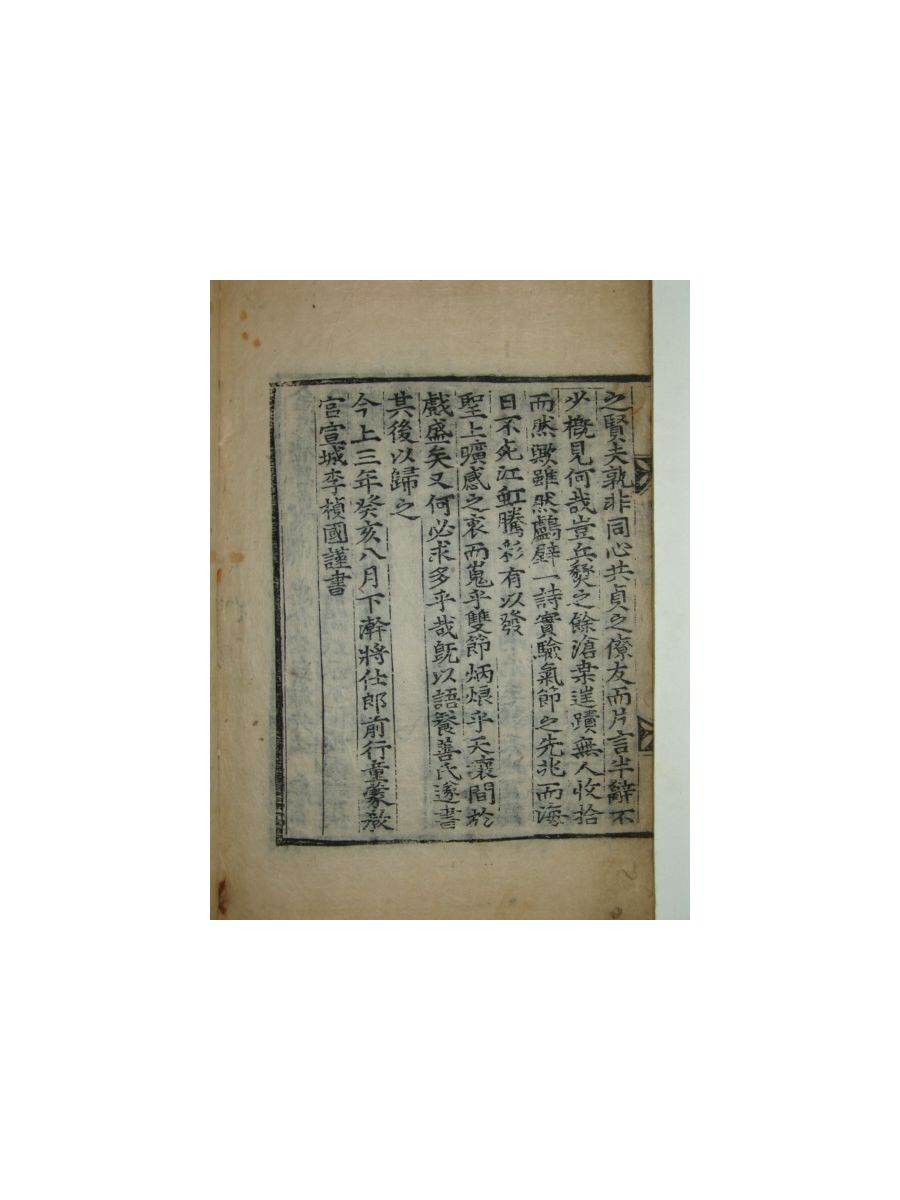 之賢夫孰非同心共貞之僚友而片言半辭不
少槪見何哉豈兵燹之餘滄桒迬蹟無人收拾
而然歟雖然鸕壁一詩實驗氣節之先兆而海
日不死江虹騰彩有以發
聖上曠感之衷而嵬乎雙節炳烺乎天壤間於
戲盛矣又何必求多乎哉旣以語養善氏遂書
其後以歸之
今上三年癸亥八月下澣將仕郎前行童蒙敎
官宣城李楨國謹書